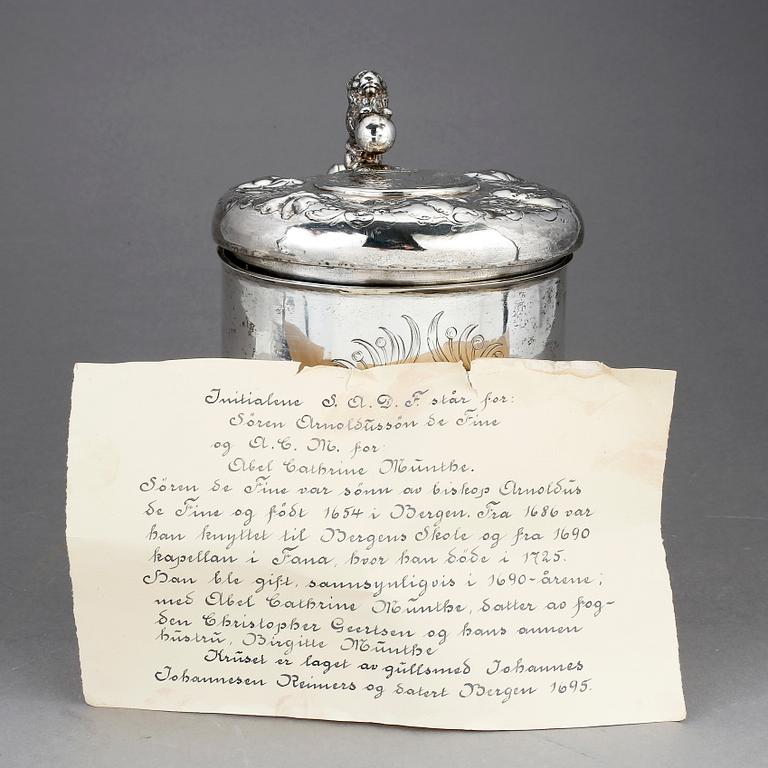 Initialene S. A. D. F. står for:
Sören Arnoldussön de Fine
og A. C. M. for:
Abel Cathrine Munthe.
Sören de Fine var sönn av biskop Arnoldus
de Fine og födt 1654 i Bergen. Fra 1686 var
han knyttet til Bergens Skole og fra 1690
kapellan i Fana, hvor han döde i 1725.
Han ble gift, sannsynligvis i 1690-årene;
med Abel Cathrine Munthe, datter av fog-
den Christopher Geertsen og hans annen
hustru, Birgitte Munthe
Kruset er laget av gullsmed Johannes
Johannesen Reimers og datert Bergen 1695.